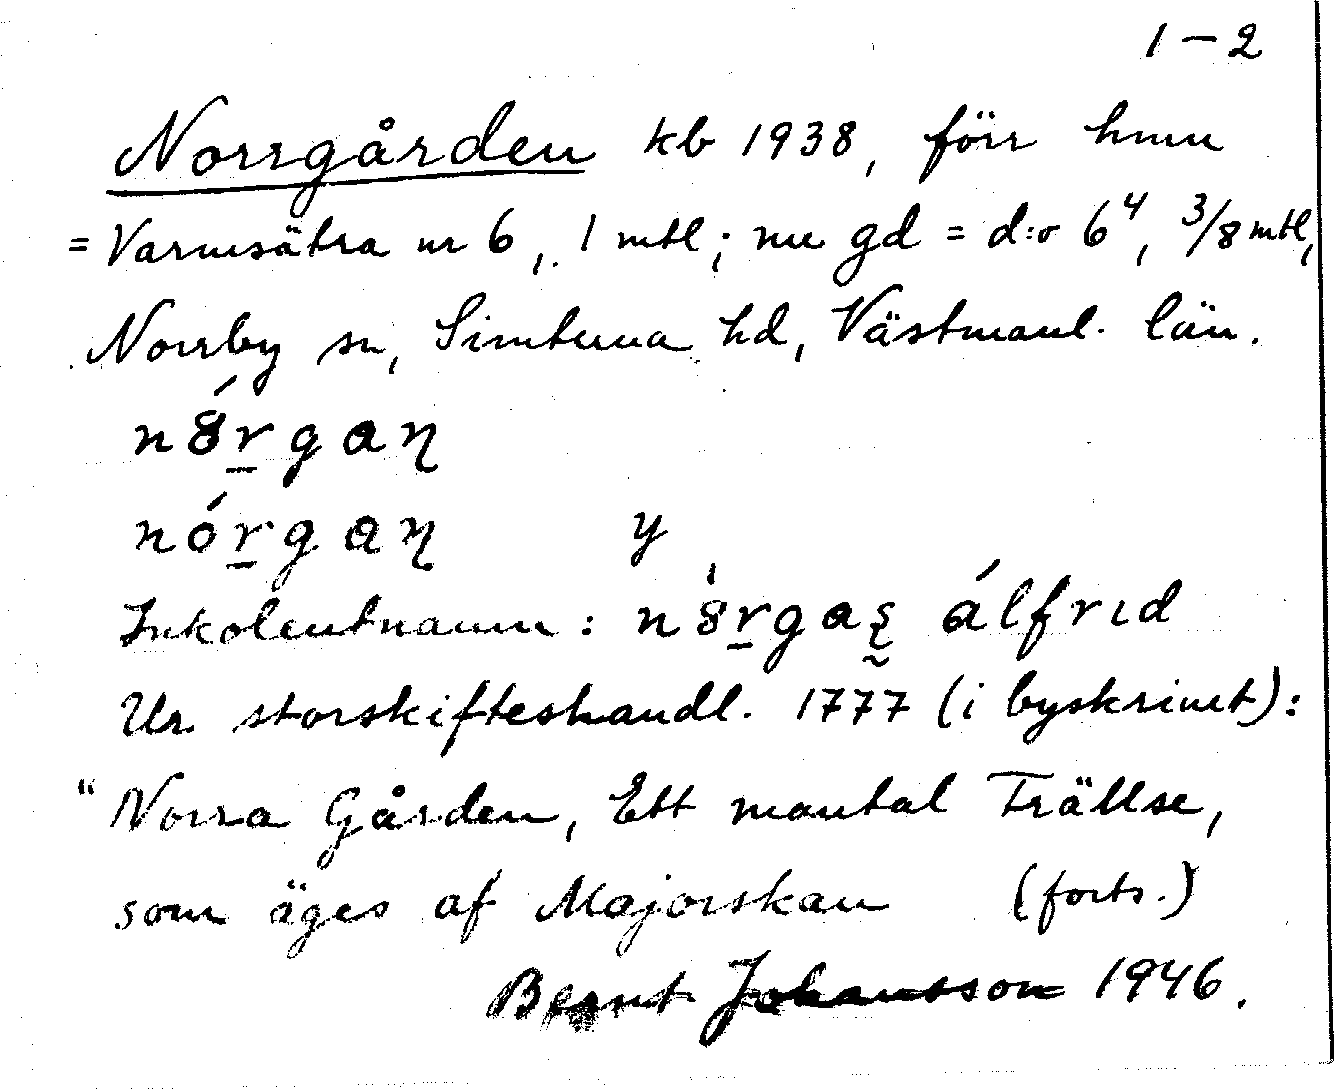 1-2
Norrgården kb 1938, förr hmn
= Varmsätra nr 6, 1 mtl; nu gd = d:o 6⁴, 3/8 mtl,
Norrby sn, Simtuna hd, Västmanl. län.
nórgaɳ
y
Inkolentnamn: álfrɩd
Ur storskifteshandl. 1777 (i byskrinet):
"Norra Gården, Ett mantal Frällse,
som äges af Majorskan (forts.)
Bernt Johansson 1946.